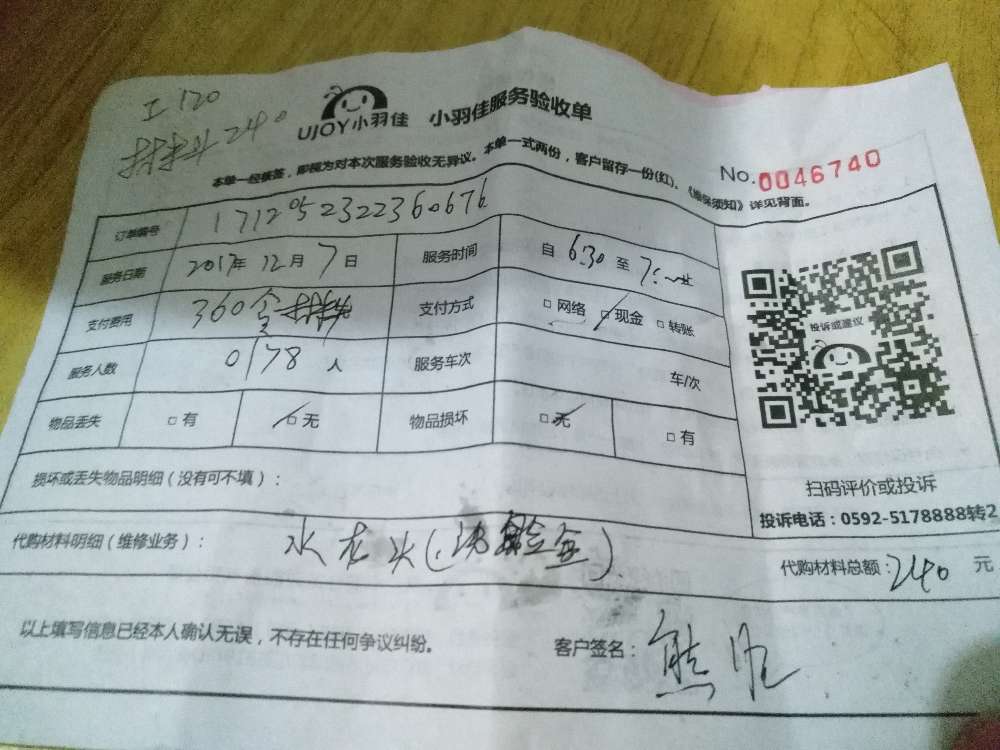 工 120
材料 240
UJOY小羽佳 小羽佳服务验收单
本单一经签签，即视为对本次服务验收无异议。本单一式两份，客户留存一份(红)。《维保须知》详见背面。
No.0046740
订单编号 171205232236 0676
服务日期 2017年 12月 7日 服务时间 自 6:30 至 7:
支付费用 360含材料 支付方式 □网络 □现金 □转账
服务人数 0178 人 服务车次 车/次
物品丢失 □有 □无 物品损坏 □无 □有
投诉或建议
扫码评价或投诉
投诉电话：0592-5178888转2
损坏或丢失物品明细（没有可不填）：
代购材料明细（维修业务）： 水龙头
代购材料总额：240 元
以上填写信息已经本人确认无误，不存在任何争议纠纷。
客户签名：熊